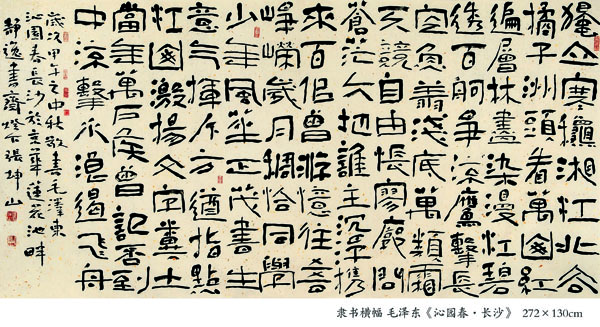 獨立寒龝湘江北去
橘子洲頭看萬山紅
遍層林盡染漫江碧
透百舸爭流鷹擊長
空魚翔淺底萬類霜
天競自由悵寥廓問
蒼茫大地誰主沉浮攜
來百侶曾游憶往昔
崢嶸歲月稠恰同學
少年風華正茂書生
意氣揮斥方遒指點
江山激揚文字糞土
當年萬戶侯曾記否到
中流擊水浪遏飛舟
歲次甲子之中秋敬書毛澤東
沁園春長沙於京華蓮花池畔
靜逸書齋燈下張坤山
隶书横幅 毛泽东《沁园春·长沙》 272×130cm